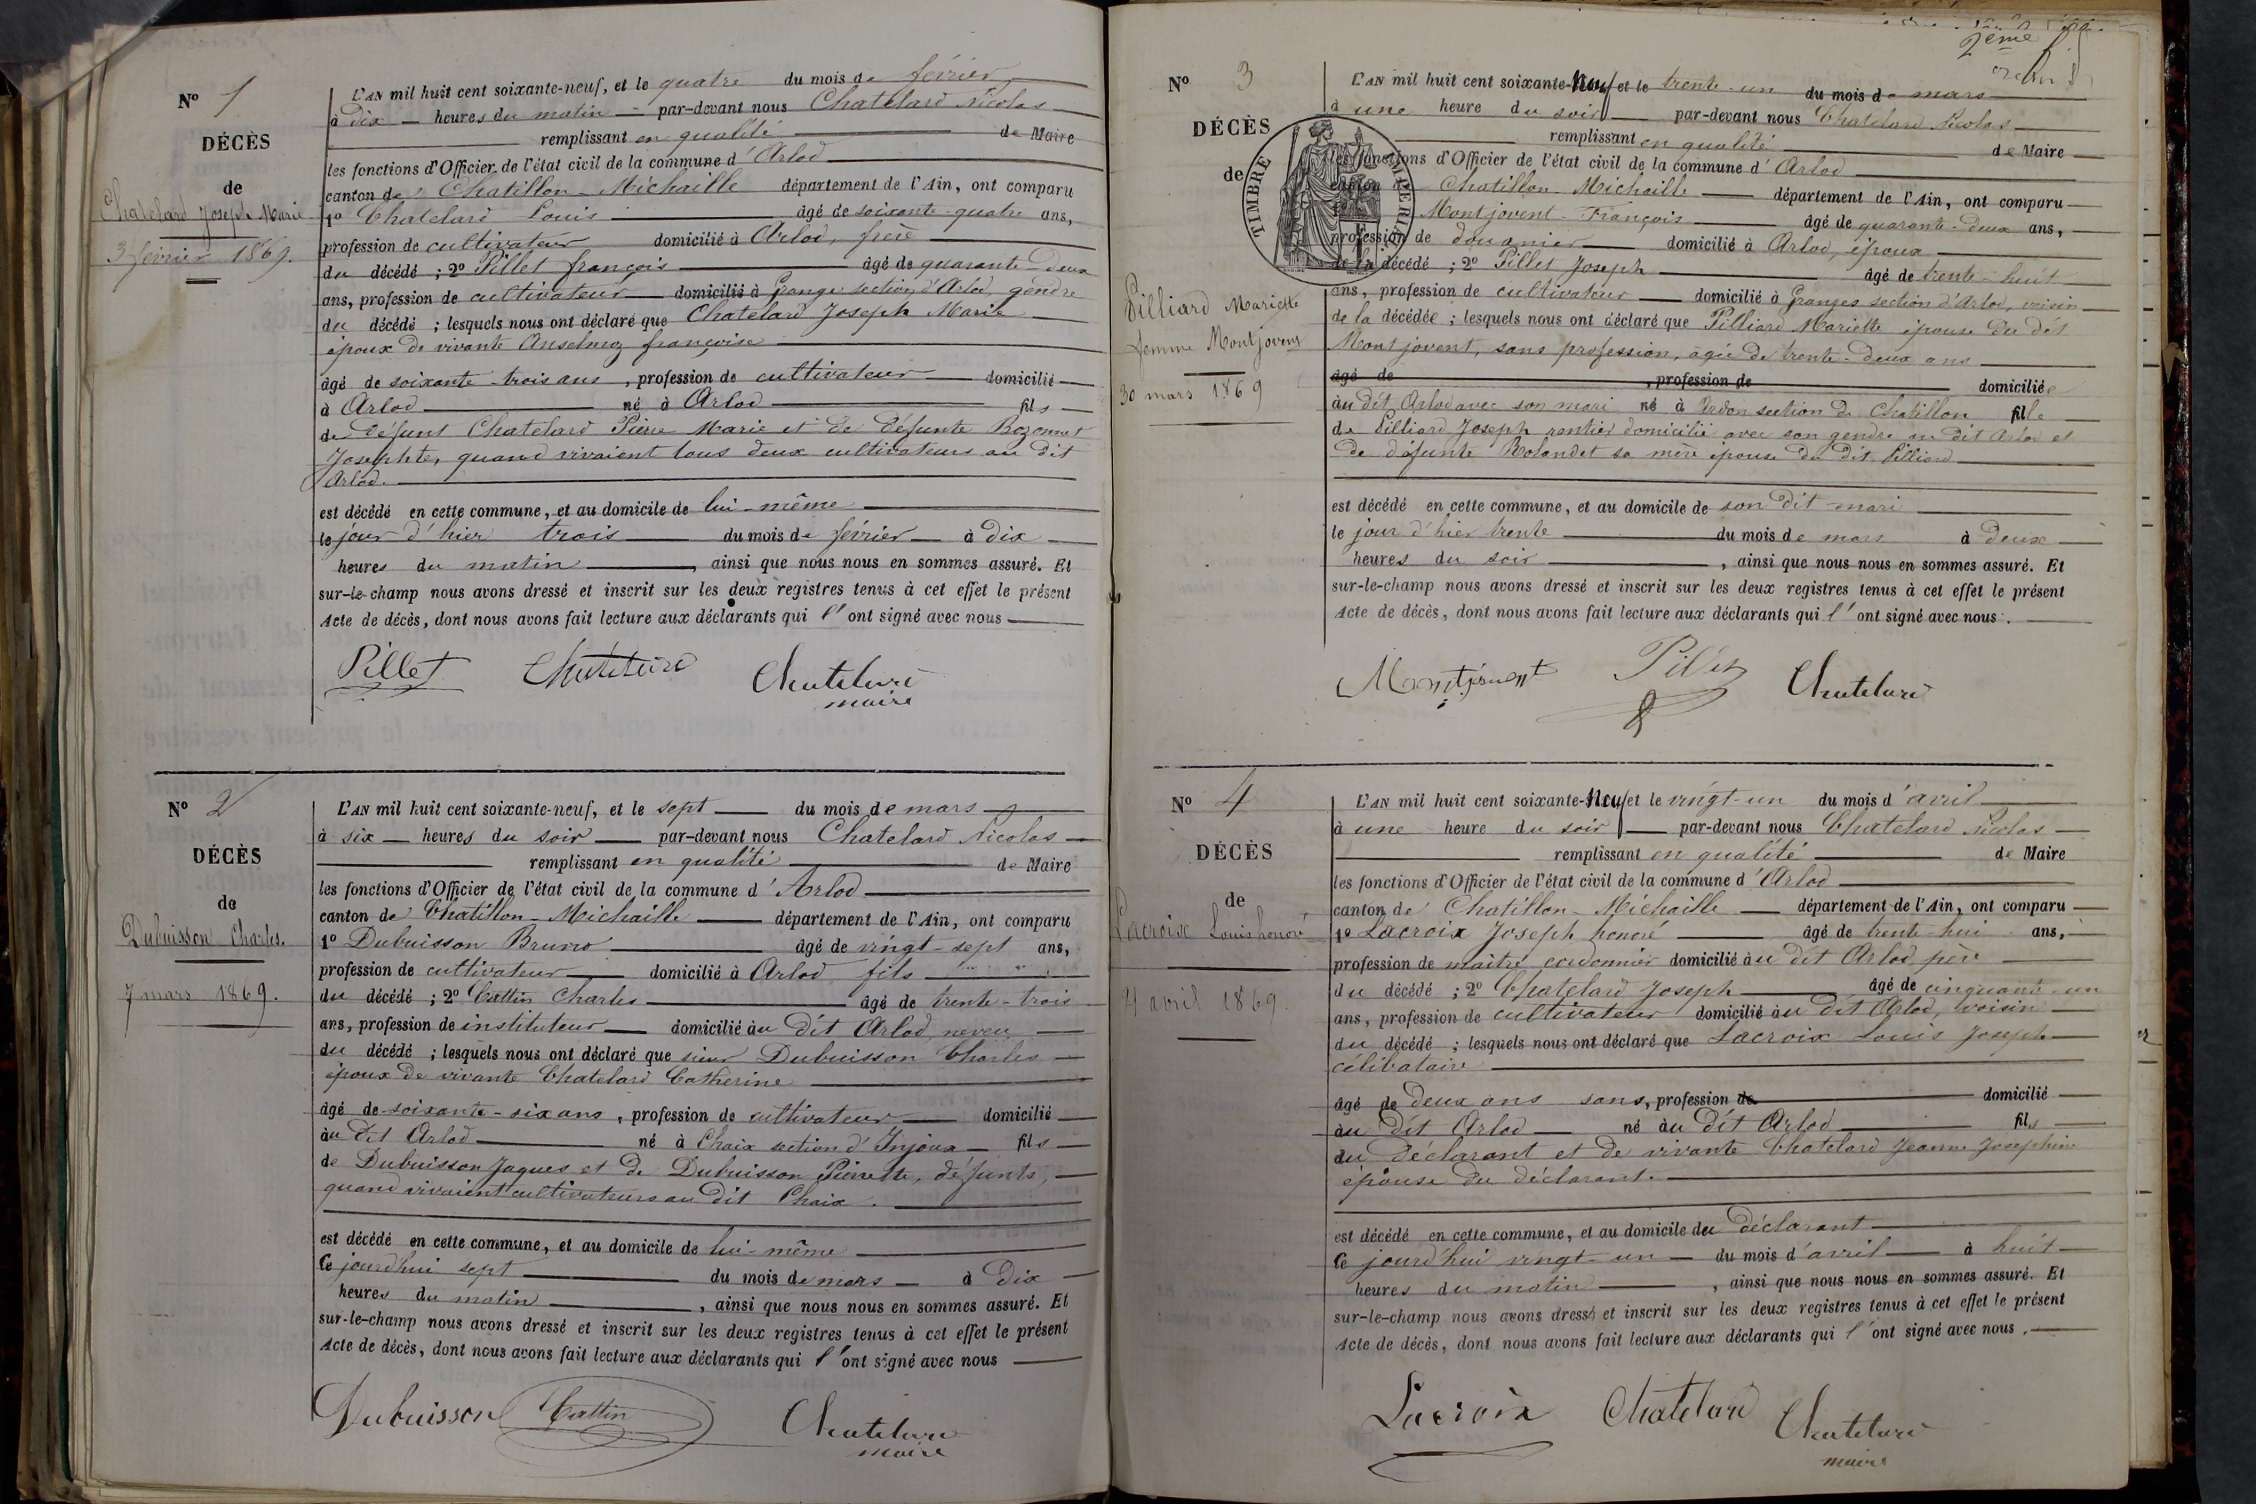 N° 1
DÉCÈS
de
Chatelard Joseph Marie
3 février 1869.
L'AN mil huit cent soixante-neuf, et le quatre du mois de février
à dix heures du matin par-devant nous Chatelard Nicolas
remplissant en qualité de Maire
les fonctions d'Officier de l'état civil de la commune d'Arlod
canton de Chatillon-Michaille département de l'Ain, ont comparu
1° Chatelard Louis âgé de soixante-quatre ans,
profession de cultivateur domicilié à Arlod, frère
du décédé ; 2° Pillet françois âgé de quarante-deux
ans, profession de cultivateur domicilié à Granges section d'Arlod, gendre
du décédé ; lesquels nous ont déclaré que Chatelard Joseph Marie
époux de vivante Anselmoz françoise
âgé de soixante-trois ans, profession de cultivateur domicilié
à Arlod né à Arlod fils
de défunt Chatelard Pierre Marie et de défunte Bozonnet
Josephte, quand vivaient tous deux cultivateurs au dit
Arlod.
est décédé en cette commune, et au domicile de lui-même
le jour d'hier trois du mois de février à dix
heures du matin, ainsi que nous nous en sommes assuré. Et
sur-le-champ nous avons dressé et inscrit sur les deux registres tenus à cet effet le présent
Acte de décès, dont nous avons fait lecture aux déclarants qui l'ont signé avec nous
Pillet Chatelard Chatelard
maire
N° 2
DÉCÈS
de
Dubuisson Charles.
7 mars 1869.
L'AN mil huit cent soixante-neuf, et le sept du mois de mars
à six heures du soir par-devant nous Chatelard Nicolas
remplissant en qualité de Maire
les fonctions d'Officier de l'état civil de la commune d'Arlod
canton de Chatillon-Michaille département de l'Ain, ont comparu
1° Dubuisson Bruno âgé de vingt-sept ans,
profession de cultivateur domicilié à Arlod fils
du décédé ; 2° Cattin Charles âgé de trente-trois
ans, profession de instituteur domicilié àu dit Arlod, neveu
du décédé ; lesquels nous ont déclaré que sieur Dubuisson Charles
époux de vivante Chatelard Catherine
âgé de soixante-six ans, profession de cultivateur domicilié
àu dit Arlod né à Chaix section d'Injoux fils
de Dubuisson Jaques et de Dubuisson Pierrette, défunts,
quand vivaient cultivateurs au dit Chaix.
est décédé en cette commune, et au domicile de lui-même
Ce jourd'hui sept du mois de mars à Dix
heures du matin, ainsi que nous nous en sommes assuré. Et
sur-le-champ nous avons dressé et inscrit sur les deux registres tenus à cet effet le présent
Acte de décès, dont nous avons fait lecture aux déclarants qui l'ont signé avec nous
Dubuisson Cattin Chatelard
maire
2ème
N° 3
DÉCÈS
de
TIMBRE IMPERIAL
Pilliard Mariette
femme Montjovent
30 mars 1869
L'AN mil huit cent soixante-Neuf et le trente-un du mois de mars
à une heure du soir par-devant nous Chatelard Nicolas
remplissant en qualité de Maire
les fonctions d'Officier de l'état civil de la commune d'Arlod
canton de Chatillon-Michaille département de l'Ain, ont comparu
Montjovent François âgé de quarante-deux ans,
profession de douanier domicilié à Arlod, époux
de la décédé ; 2° Pillet Joseph âgé de trente-huit
ans, profession de cultivateur domicilié à Granges section d'Arlod, voisin
de la décédée ; lesquels nous ont déclaré que Pilliard Mariette épouse du dit
Montjovent, sans profession, âgée de trente-deux ans
âgé de , profession de domiciliée
àu dit Arlod avec son mari né à Ardon section de Chatillon fille
de Pilliard Joseph rentier domicilié avec son gendre au dit Arlod et
de défunte Rolandet sa mère épouse du dit Pilliard
est décédé en cette commune, et au domicile de son dit mari
le jour d'hier trente du mois de mars à deux
heures du soir, ainsi que nous nous en sommes assuré. Et
sur-le-champ nous avons dressé et inscrit sur les deux registres tenus à cet effet le présent
Acte de décès, dont nous avons fait lecture aux déclarants qui l'ont signé avec nous.
Montjovent Pillet Chatelard
N° 4
DÉCÈS
de
Lacroix Louis honoré
21 avril 1869.
L'AN mil huit cent soixante-Neuf et le vingt-un du mois d'avril
à une heure du soir par-devant nous Chatelard Nicolas
remplissant en qualité de Maire
les fonctions d'Officier de l'état civil de la commune d'Arlod
canton de Chatillon-Michaille département de l'Ain, ont comparu
1° Lacroix Joseph honoré âgé de trente-huit ans,
profession de maître cordonnier domicilié àu dit Arlod père
du décédé ; 2° Chatelard Joseph âgé de cinquante-un
ans, profession de cultivateur domicilié àu dit Arlod, voisin
du décédé ; lesquels nous ont déclaré que Lacroix Louis Joseph
célibataire
âgé de deux ans sans, profession de domicilié
àu dit Arlod né àu dit Arlod fils
du déclarant et de vivante Chatelard Jeanne Josephine
épouse du déclarant.
est décédé en cette commune, et au domicile deu déclarant
Ce jourd'hui vingt-un du mois d'avril à huit
heures du matin, ainsi que nous nous en sommes assuré. Et
sur-le-champ nous avons dressé et inscrit sur les deux registres tenus à cet effet le présent
Acte de décès, dont nous avons fait lecture aux déclarants qui l'ont signé avec nous.
Lacroix Chatelard Chatelard
maire